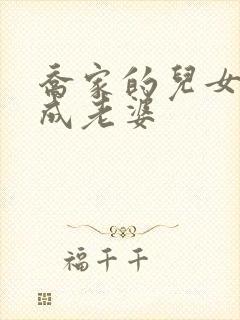 喬家的兒女
成老婆
福千千